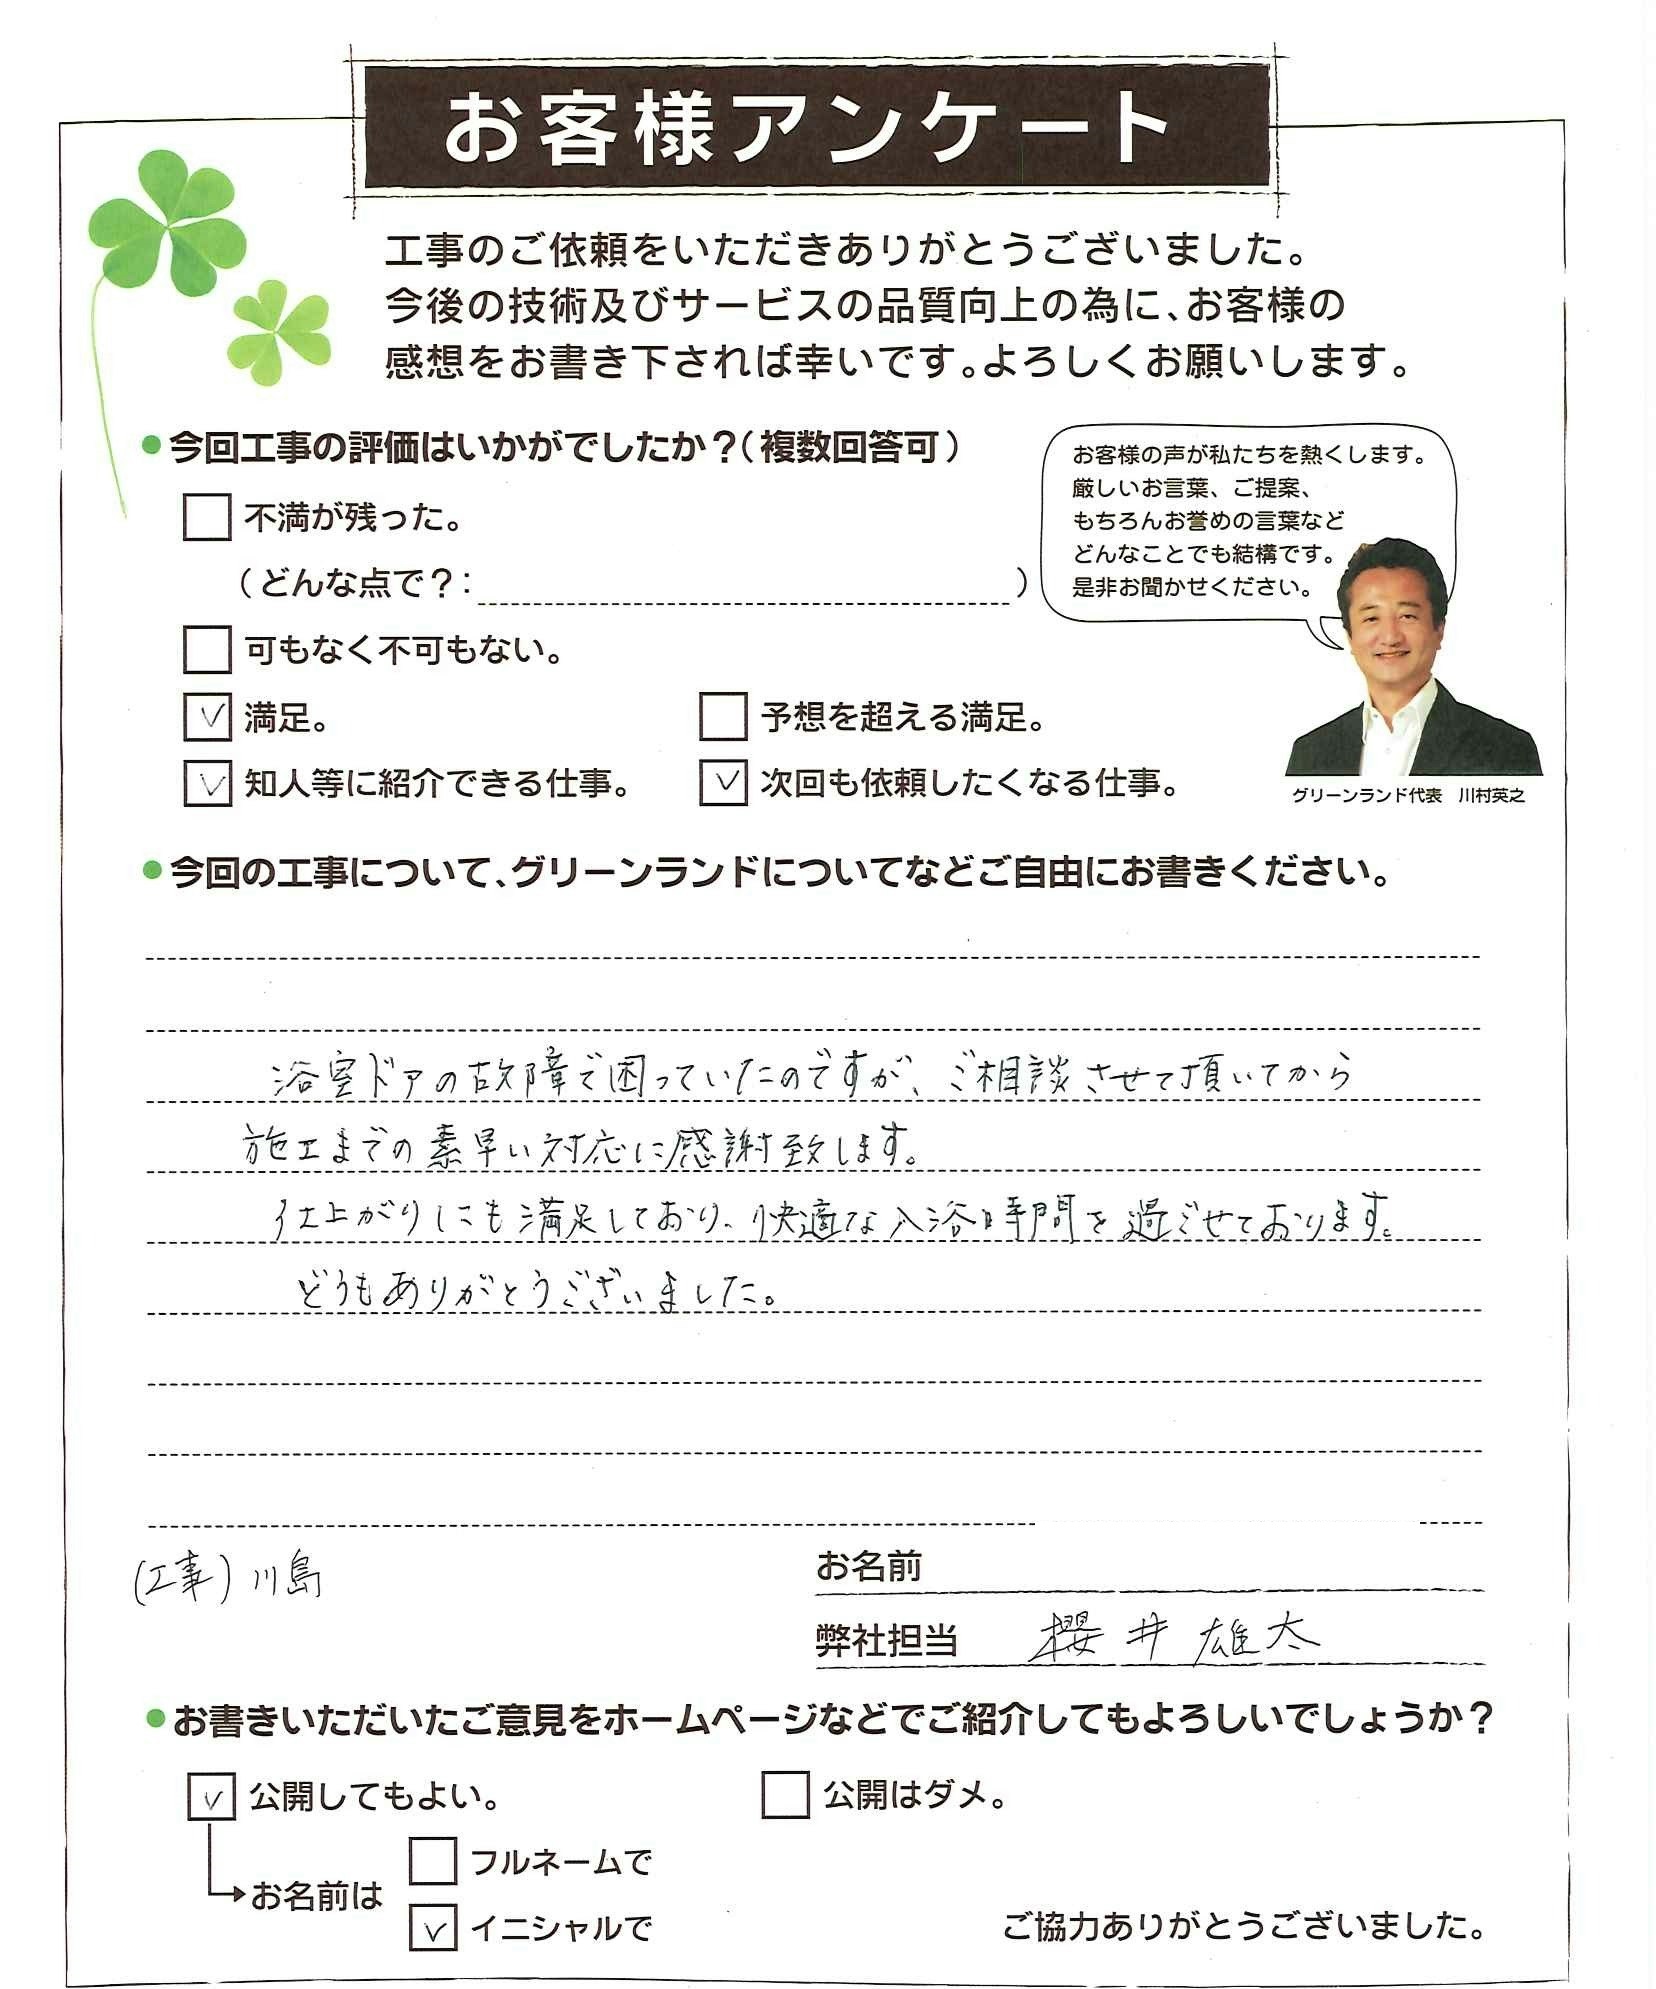 お客様アンケート
工事のご依頼をいただきありがとうございました。
今後の技術及びサービスの品質向上の為に、お客様の
感想をお書き下されば幸いです。よろしくお願いします。
●今回工事の評価はいかがでしたか？（複数回答可）
不満が残った。
（どんな点で？：　）
可もなく不可もない。
満足。
予想を超える満足。
知人等に紹介できる仕事。
次回も依頼したくなる仕事。
お客様の声が私たちを熱くします。
厳しいお言葉、ご提案、
もちろんお誉めの言葉など
どんなことでも結構です。
是非お聞かせください。
グリーンランド代表　川村英之
●今回の工事について、グリーンランドについてなどご自由にお書きください。
浴室ドアの故障で困っていたのですが、ご相談させて頂いてから
施工までの素早い対応に感謝致します。
仕上がりにも満足しており、快適な入浴時間を過ごせております。
どうもありがとうございました。
(工事) 川島
お名前
弊社担当　櫻井 雄太
●お書きいただいたご意見をホームページなどでご紹介してもよろしいでしょうか？
公開してもよい。
公開はダメ。
お名前は
フルネームで
イニシャルで
ご協力ありがとうございました。